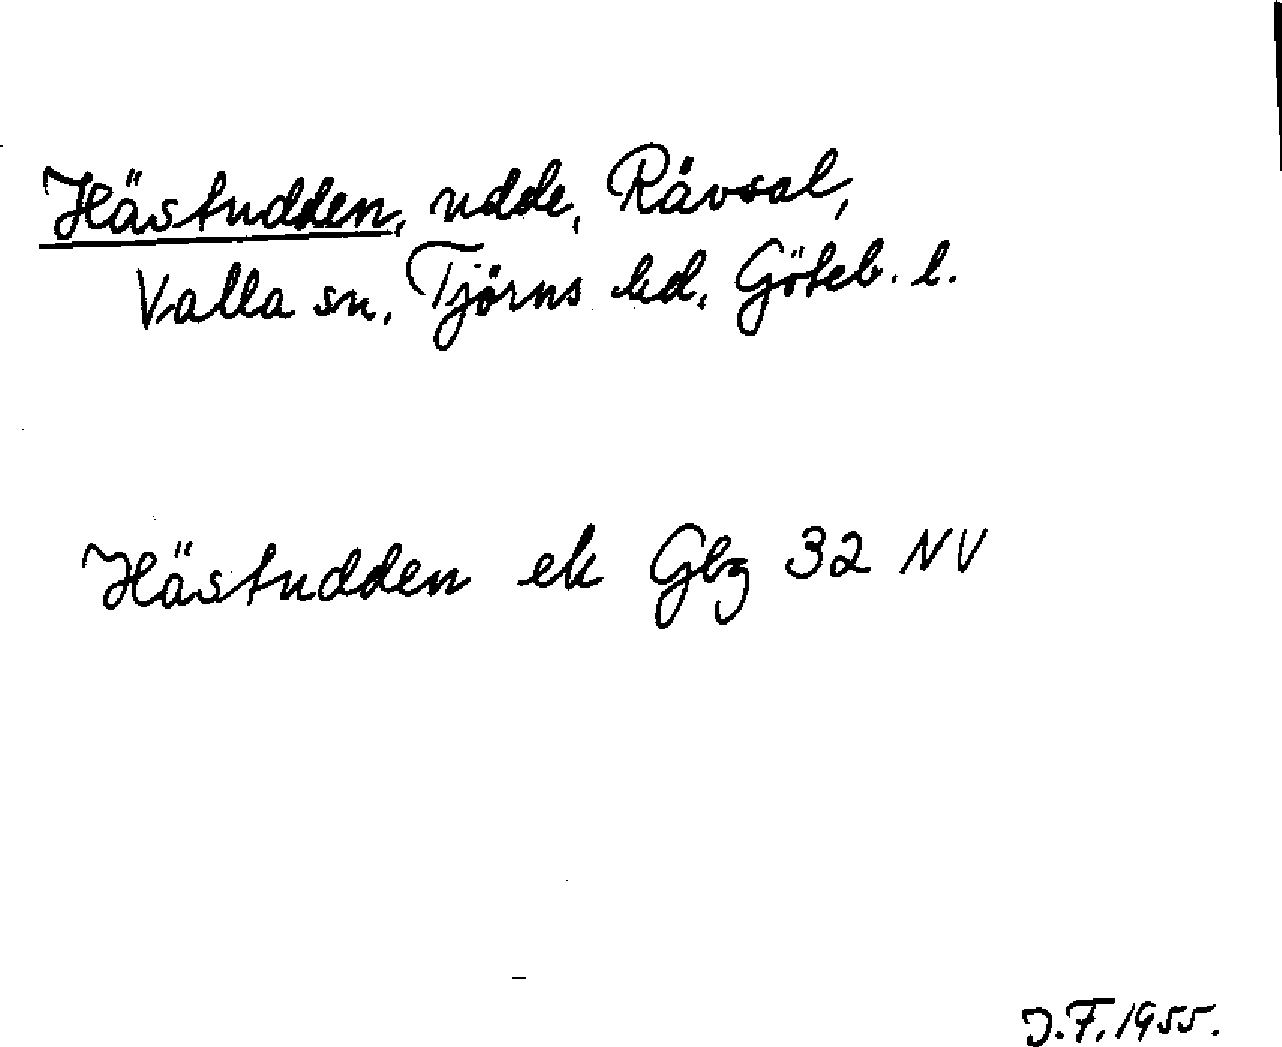 Hästudden, udde, Rävsal,
Valla sn, Tjörns hd, Göteb. l.
Hästudden ek Gbg 32 NV
J.F. 1955.